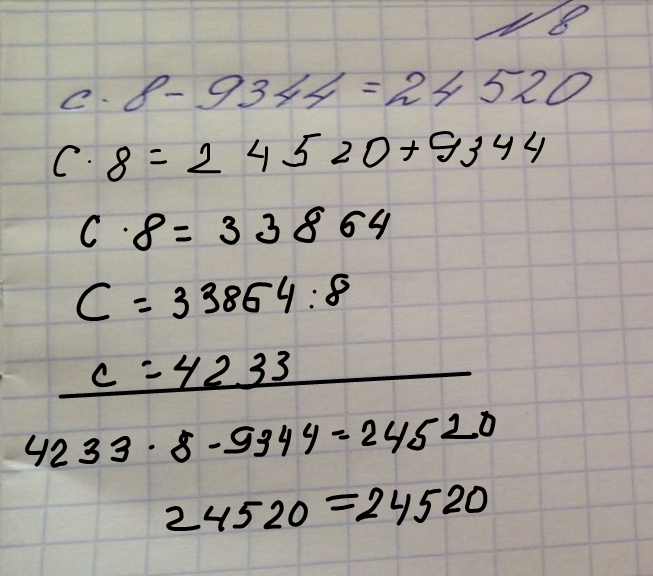 № 8
c · 8 - 9344 = 24520
c · 8 = 24520 + 9344
c · 8 = 33864
c = 33864 : 8
c = 4233
4233 · 8 - 9344 = 24520
24520 = 24520